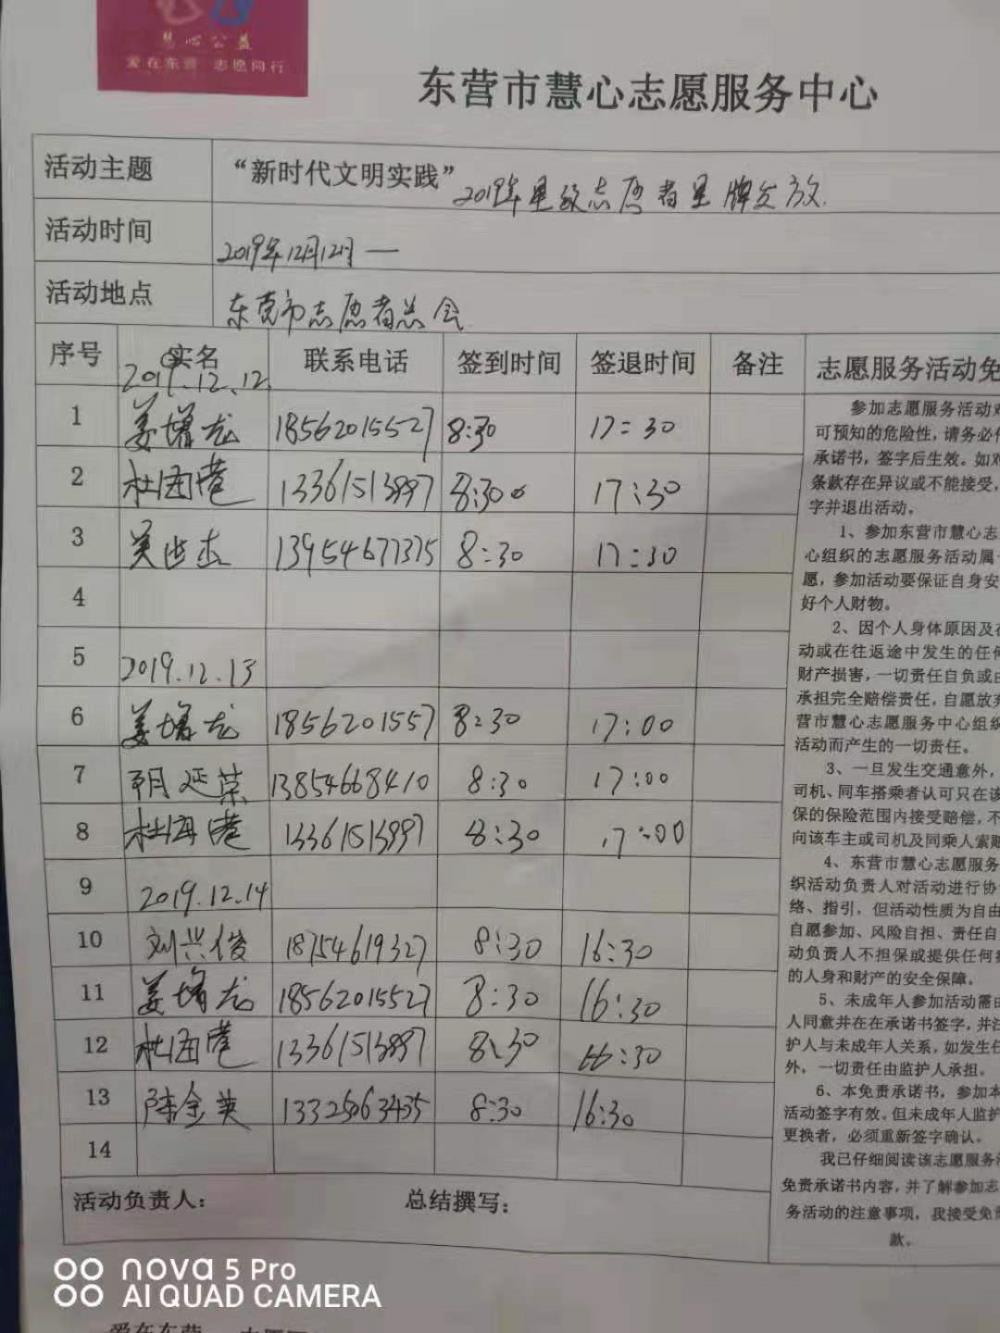 慧心公益
爱在东营 志愿同行
东营市慧心志愿服务中心
活动主题 “新时代文明实践” 2019年星级志愿者星牌发放
活动时间 2019年12月12日一
活动地点 东营市志愿者总会
序号 实名 联系电话 签到时间 签退时间 备注
2019.12.12
1 姜增龙 18562015527 8:30 17:30
2 杜海港 13361513997 8:30 17:30
3 吴世杰 13954677375 8:30 17:30
4
5 2019.12.13
6 姜增龙 1856201557 8:30 17:00
7 延荣 13854668410 8:30 17:00
8 杜海港 13361513997 8:30 17:00
9 2019.12.14
10 刘兴俊 18754619327 8:30 16:30
11 姜增龙 18562015527 8:30 16:30
12 杜海港 13361513997 8:30 16:30
13 陈金英 8:30 16:30
14
活动负责人： 总结撰写：
志愿服务活动免
参加志愿服务活动
可预知的危险性，请务必
承诺书，签字后生效。如对
条款存在异议或不能接受，
字并退出活动。
1、参加东营市慧心志
心组织的志愿服务活动属
愿，参加活动要保证自身安
好个人财物。
2、因个人身体原因及在
动或在往返途中发生的任何
财产损害，一切责任自负或由
承担完全赔偿责任，自愿放弃
营市慧心志愿服务中心组织
活动而产生的一切责任。
3、一旦发生交通意外，
司机、同车搭乘者认可只在该
保的保险范围内接受赔偿，不
向该车主或司机及同乘人索赔
4、东营市慧心志愿服务
织活动负责人对活动进行协
络、指引，但活动性质为自由
自愿参加、风险自担、责任自
动负责人不担保或提供任何
的人身和财产的安全保障。
5、未成年人参加活动需由
人同意并在在承诺书签字，并注
护人与未成年人关系，如发生任
外，一切责任由监护人承担。
6、本免责承诺书，参加本
活动签字有效。但未成年人监护
更换者，必须重新签字确认。
我已仔细阅读该志愿服务活
免责承诺书内容，并了解参加志
务活动的注意事项，我接受免责
款。
nova 5 Pro
AI QUAD CAMERA
爱在东营